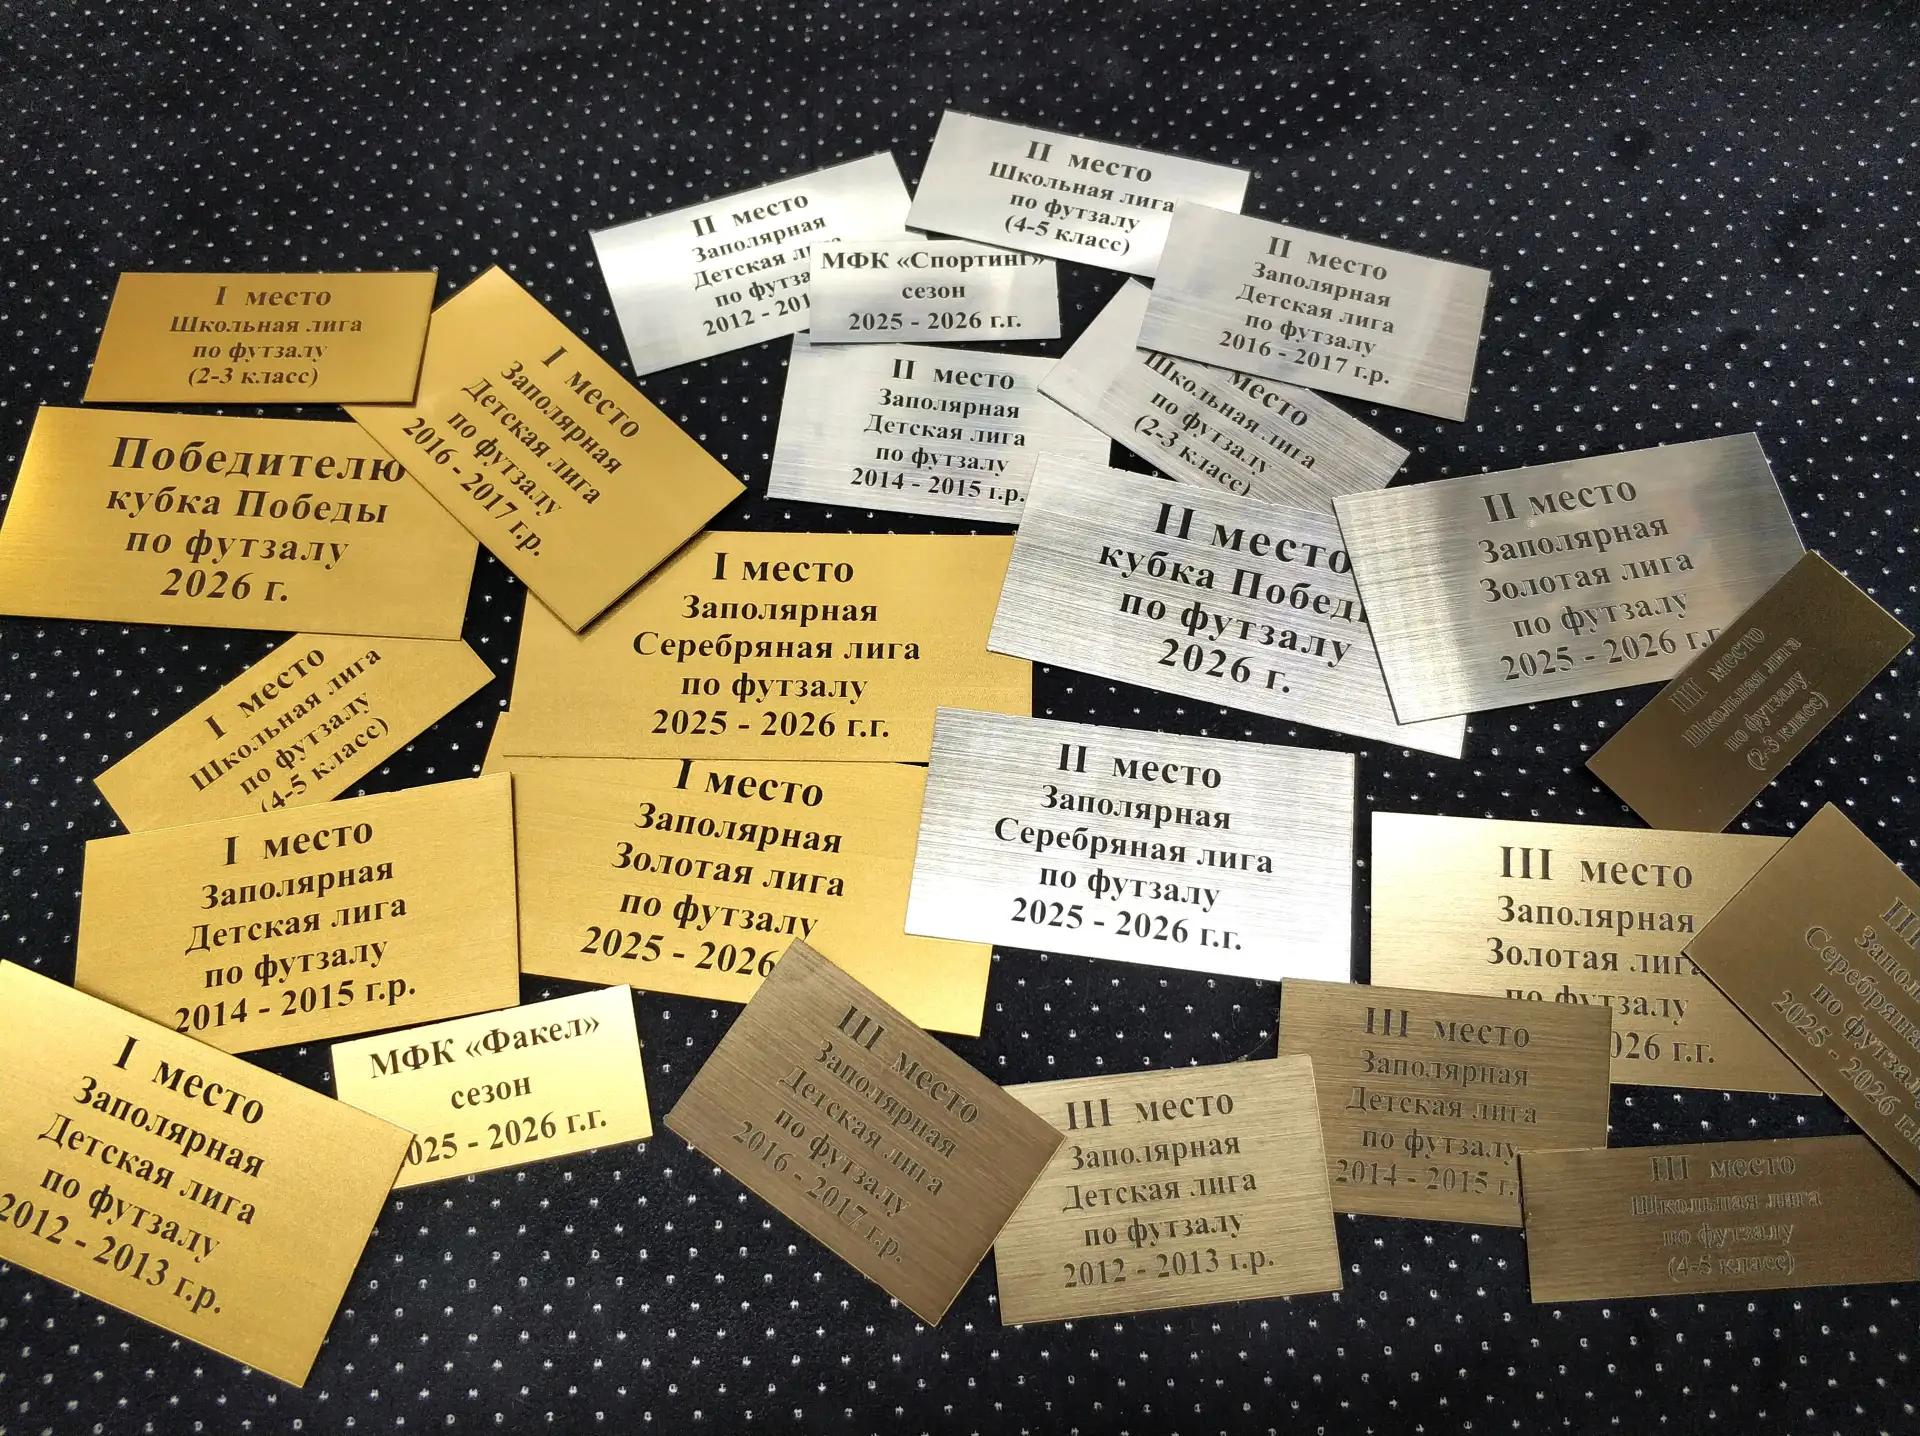 II место
Школьная лига
по футзалу
(4-5 класс)
II место
Заполярная
Детская
по футза
2012 - 201
МФК «Спортинг»
сезон
2025 - 2026 г.г.
II место
Заполярная
Детская лига
по футзалу
2016 - 2017 г.р.
I место
Школьная лига
по футзалу
(2-3 класс)
I место
Заполярная
Детская лига
по футзалу
2016 - 2017 г.р.
II место
Заполярная
Детская лига
по футзалу
2014 - 2015 г.р.
место
Школьная лига
по футзалу
(2-3 класс)
Победителю
кубка Победы
по футзалу
2026 г.
I место
Заполярная
Серебряная лига
по футзалу
2025 - 2026 г.г.
II место
кубка Побед
по футзалу
2026 г.
II место
Заполярная
Золотая лига
по футзалу
2025 - 2026 г.г.
III место
Школьная лига
по футзалу
(2-3 класс)
I место
Школьная лига
по футзалу
(4-5 класс)
I место
Заполярная
Золотая лига
по футзалу
2025 - 2026
II место
Заполярная
Серебряная лига
по футзалу
2025 - 2026 г.г.
III место
Заполярная
Золотая лига
по футзалу
026 г.г.
III
Запол
Серебряна
по футзал
2025 - 2026 г.г
I место
Заполярная
Детская лига
по футзалу
2014 - 2015 г.р.
I место
Заполярная
Детская лига
по футзалу
2012 - 2013 г.р.
МФК «Факел»
сезон
025 - 2026 г.г.
III место
Заполярная
Детская лига
по футзалу
2016 - 2017 г.р.
III место
Заполярная
Детская лига
по футзалу
2012 - 2013 г.р.
III место
Заполярная
Детская лига
по футзалу
2014 - 2015 г.
III место
Школьная лига
по футзалу
(4-5 класс)